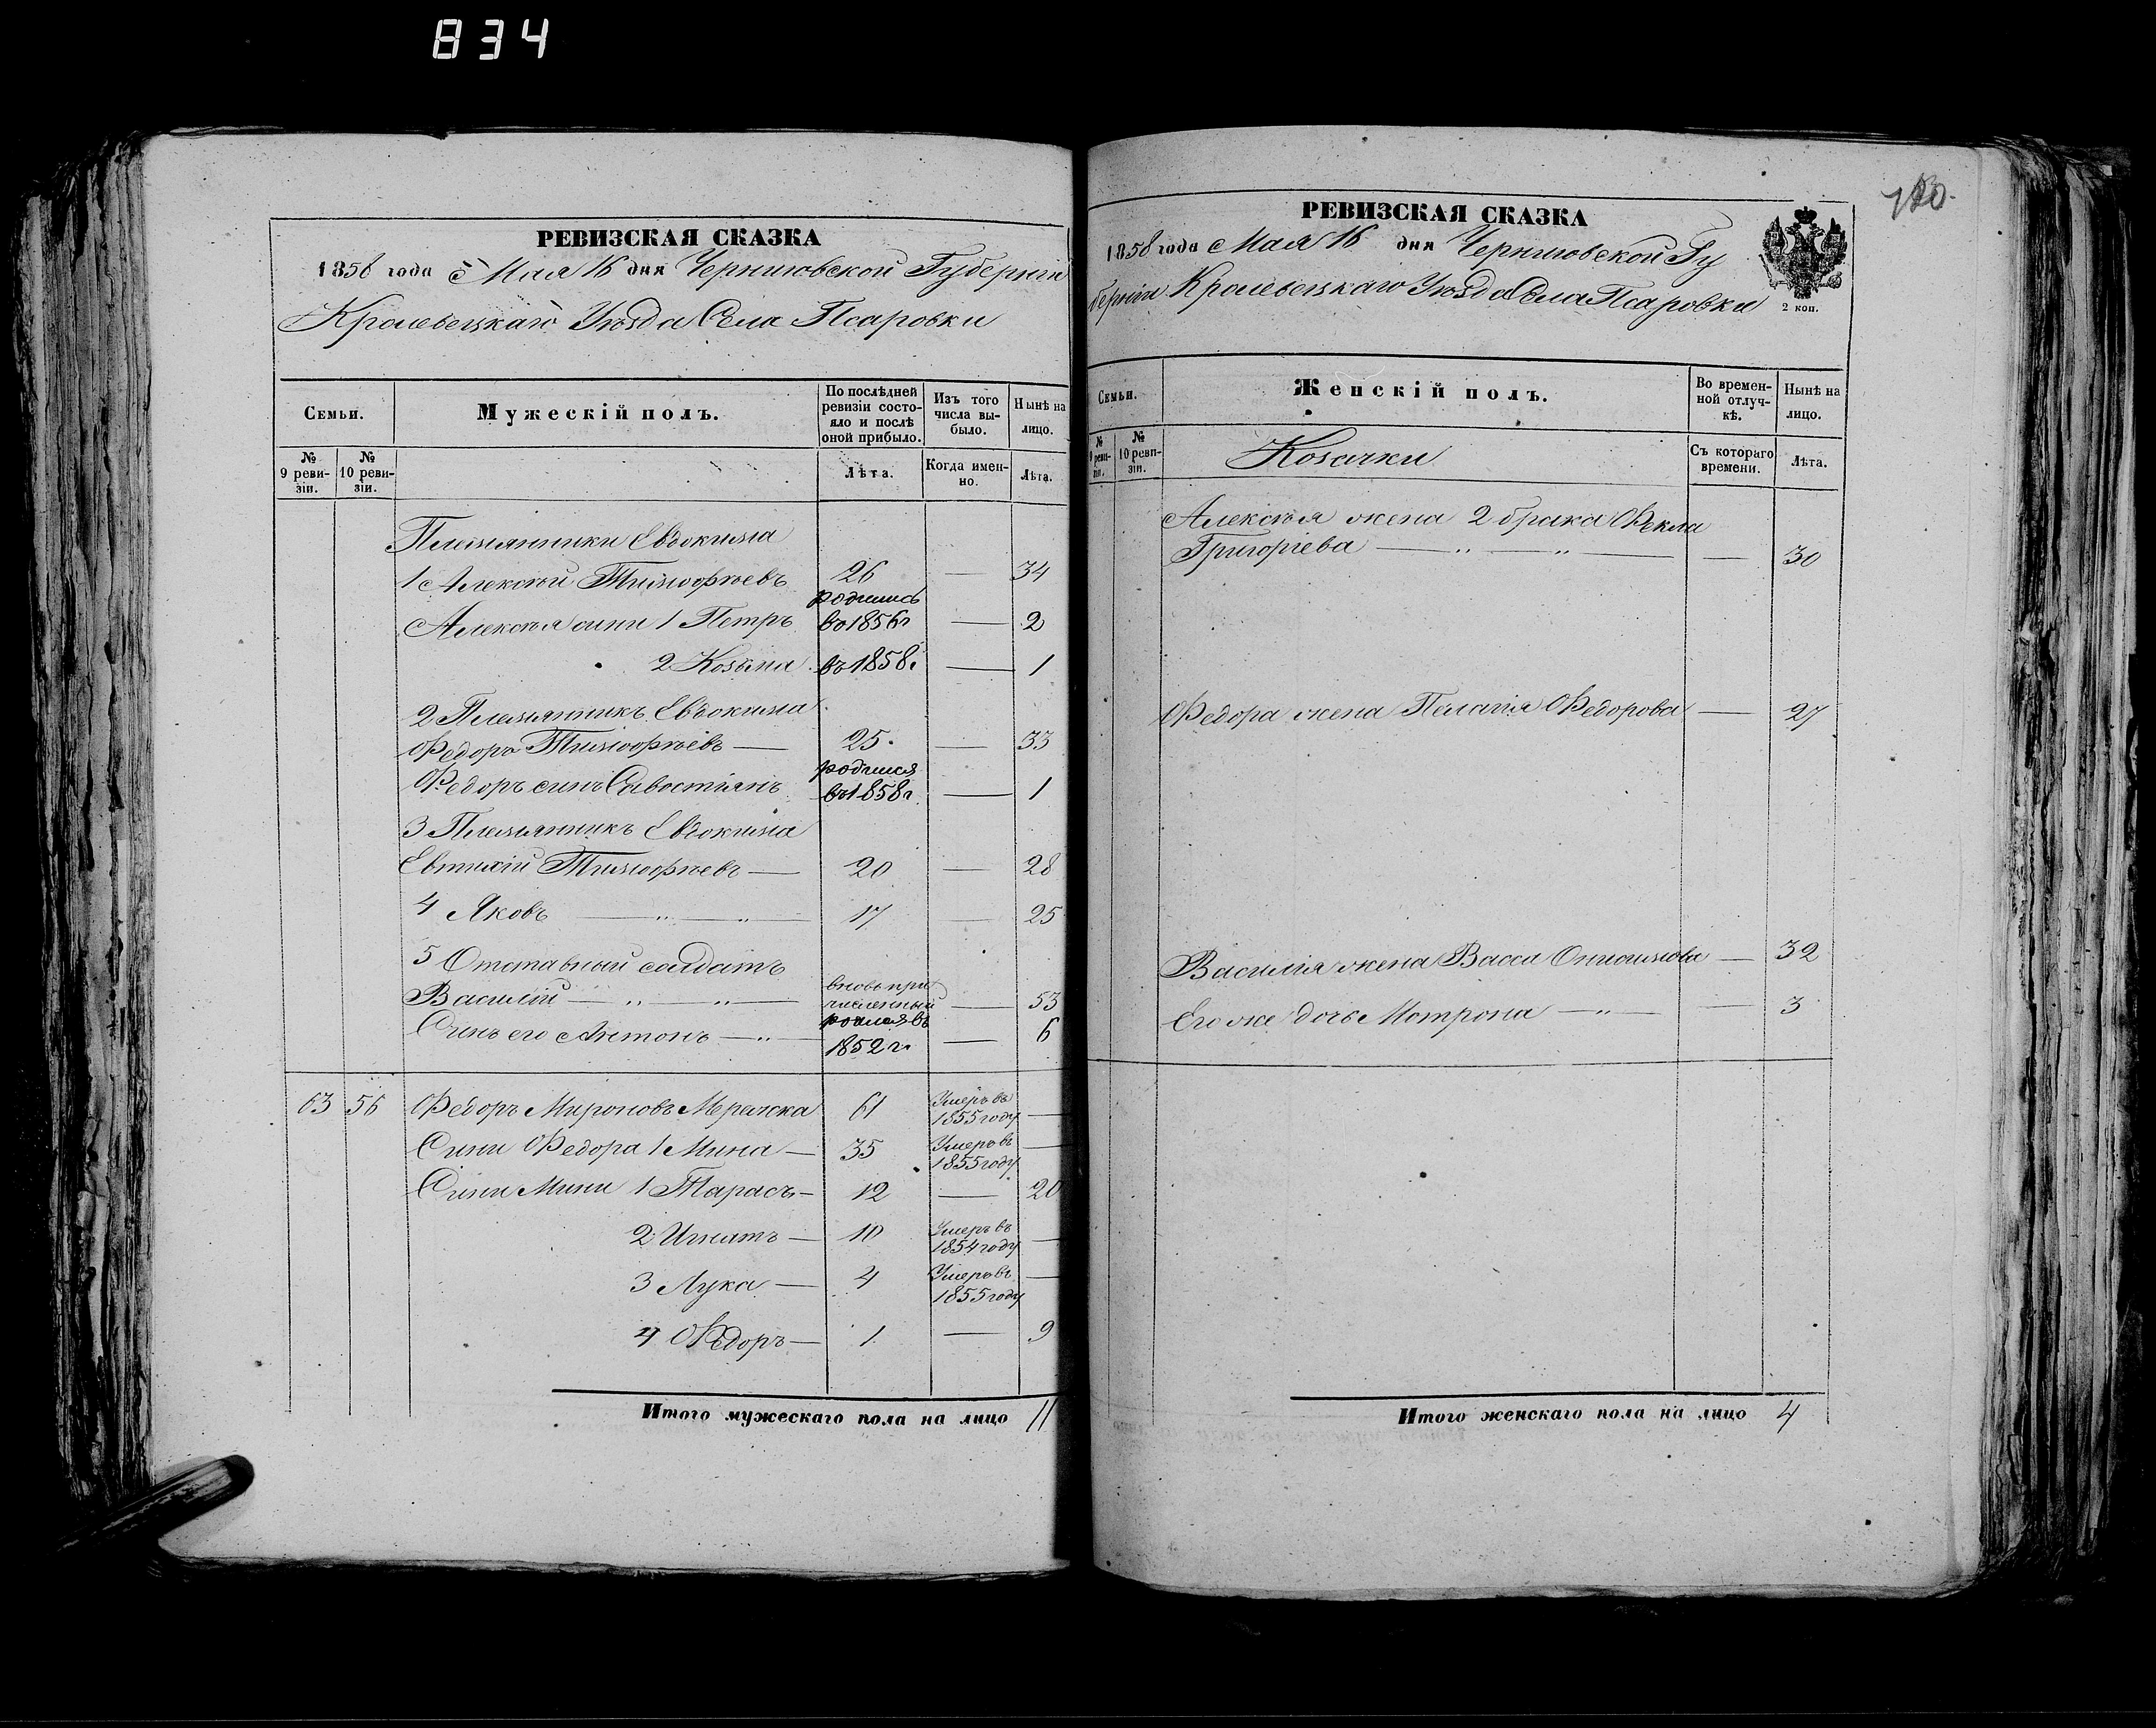 834
РЕВИЗСКАЯ СКАЗКА
1858 года Мая 16 дня Черниговской Губерніи
Кролевецкаго Уѣзда Села Псаровки
Семьи.
Мужескій полъ.
По послѣдней ревизіи состояло и послѣ оной прибыло.
Изъ того числа выбыло.
Нынѣ на лицо.
№ 9 ревизіи.
№ 10 ревизіи.
Лѣта.
Когда именно.
Лѣта.
Племянники Евдокима
1 Алексѣй Тимофѣевъ 26 — 34
Алексѣя сини 1 Петръ родились во 1856г — 2
2 Козьма въ 1858г — 1
2 Племянникъ Евдокима
Федоръ Тимофѣевъ — 25 — 33
Федоръ синъ Савостіянъ родился въ 1858г — 1
3 Племянникъ Евдокима
Евтихій Тимофѣевъ — 20 — 28
4 Яковъ — „ — „ — 17 — 25
5 Отставный солдатъ
Василій — „ — „ — вновь причисленный — 53
Синъ его Антонъ — „ — родился въ 1852 г. — 6
63 56 Федоръ Мироновъ Мережка 61 Умеръ въ 1855 году —
Сини Федора 1 Мина — 35 Умеръ въ 1855 году —
Сини Мини 1 Тарасъ — 12 — 20
2 Игнатъ — 10 Умеръ въ 1854 году —
3 Лука — 4 Умеръ въ 1855 году —
4 Федоръ — 1 — 9
Итого мужескаго пола на лицо 11
РЕВИЗСКАЯ СКАЗКА
1858 года Мая 16 дня Черниговской Гу
берніи Кролевецкаго Уѣзда Села Псаровки
2 коп.
Семьи.
Женскій полъ.
Во временной отлучкѣ.
Нынѣ на лицо.
№ 9 ревизіи.
№ 10 ревизіи.
Козачки
Съ котораго времени.
Лѣта.
Алексѣя жена 2 брака Фекла
Григоріева — „ — „ — — 30
Федора жена Пелагія Федорова — 27
Василія жена Васса Онисимова — 32
Его же дочь Мотрона — „ — — 3
Итого женскаго пола на лицо 4